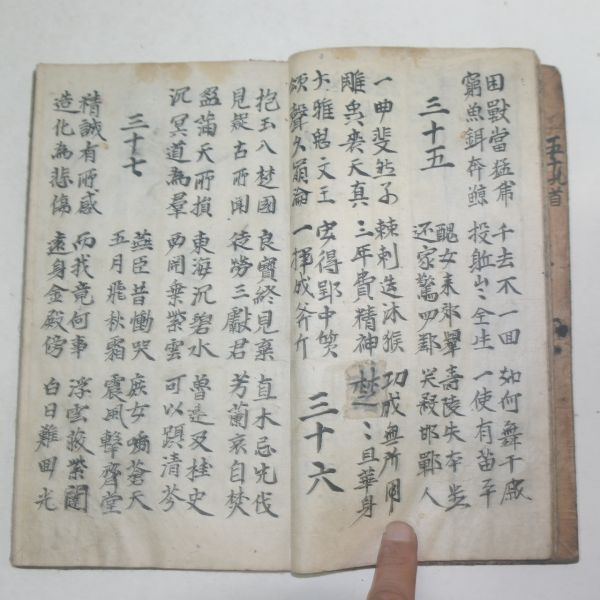 困獸當猛虎 千去不一回 如何舞干戚
窮魚餌奔鯨 投軀豈全生 一使有苗平
三十五
醜女來效顰 壽陵失本步
還家驚四鄰 笑殺邯鄲人
一曲斐然子 棘刺造沐猴 功成無所用
雕虫喪天真 三年費精神 楚〻且華身
大雅思文王 安得郢中質
頌聲久崩淪 一揮成斧斤
三十六
抱玉入楚國 良寶終見棄 直木忌先伐
見疑古所聞 徒勞三獻君 芳蘭哀自焚
盈滿天所損 東海沉碧水 魯連及柱史
沉冥道為羣 西関乗紫雲 可以躡清芬
三十七
燕臣昔慟哭 庶女號蒼天
五月飛秋霜 震風擊齊堂
精誠有所感 而我竟何事 浮雲蔽紫闥
造化為悲傷 遠身金殿傍 白日難回光